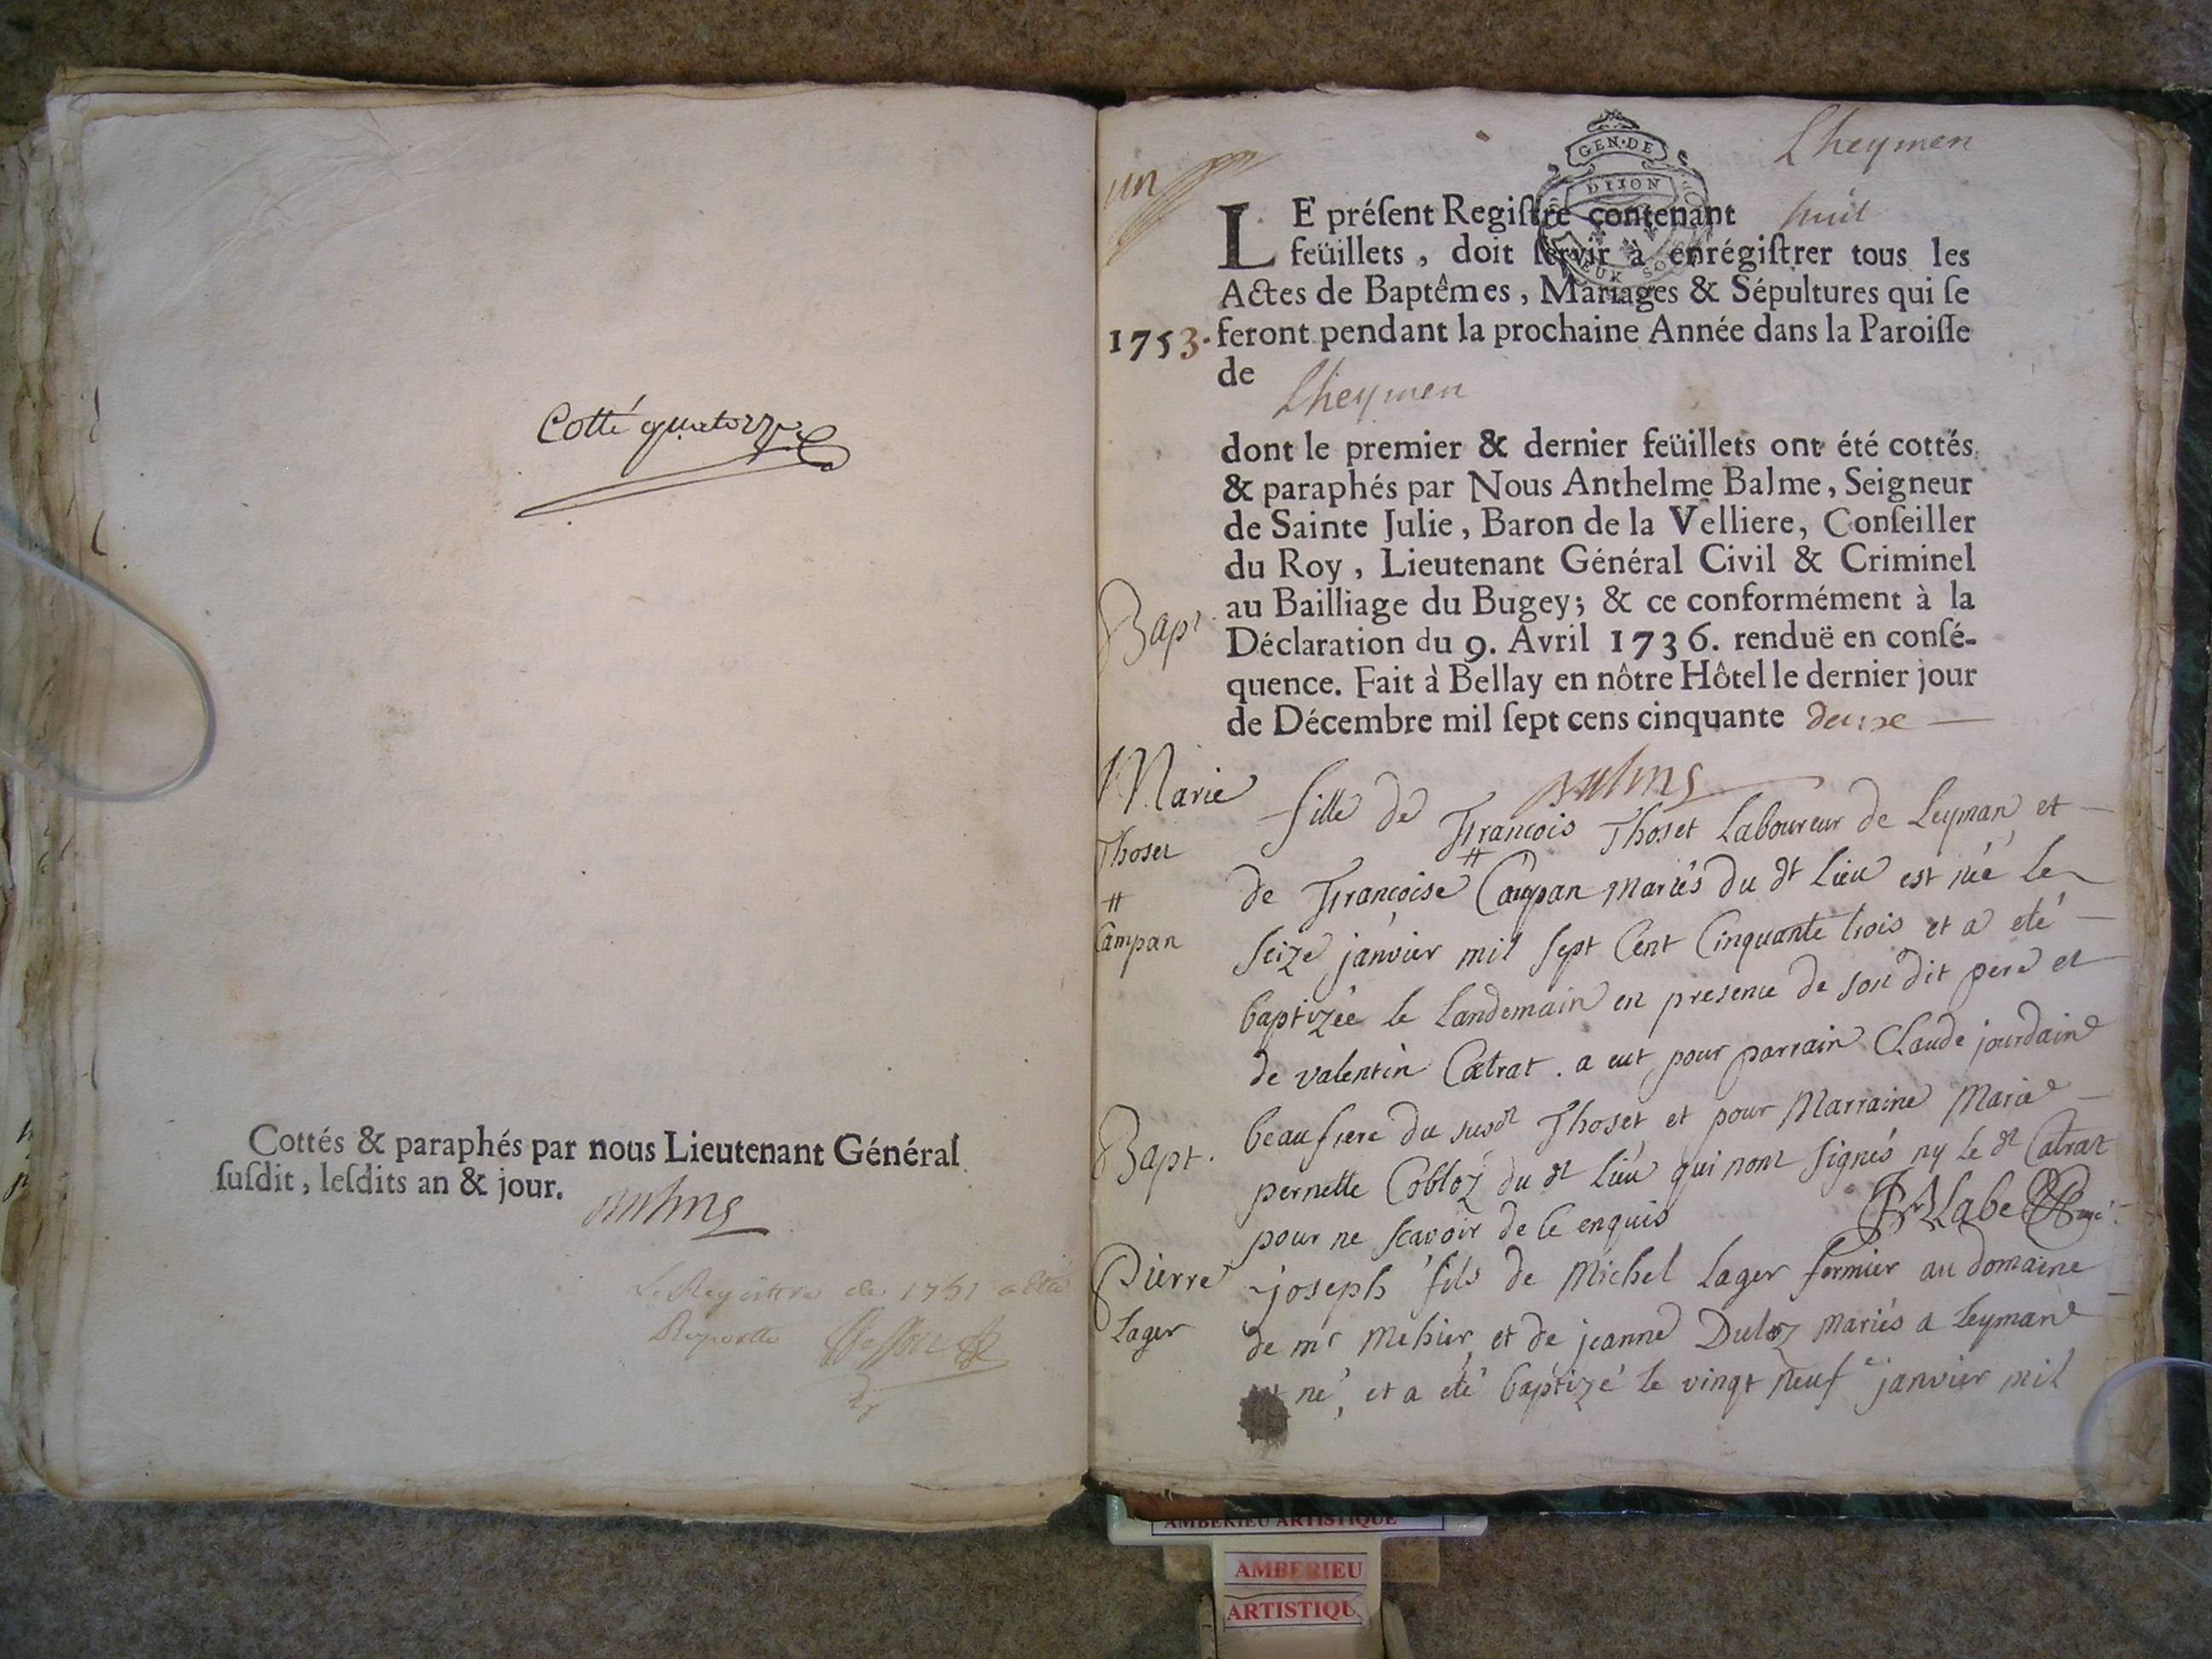 Cotté quatorze
Cottés & paraphés par nous Lieutenant Général
ſuſdit, leſdits an & jour.
Le Registre de 1751 a été
Raporté
Lheymen
un
GEN·DE
DIJON
LE préſent Regiſtre contenant huit
feüillets, doit ſervir à enrégiſtrer tous les
Actes de Baptêmes, Mariages & Sépultures qui ſe
1753. feront pendant la prochaine Année dans la Paroiſſe
de Lheymen
dont le premier & dernier feüillets ont été cottés
& paraphés par Nous Anthelme Balme, Seigneur
de Sainte Julie, Baron de la Velliere, Conſeiller
du Roy, Lieutenant Général Civil & Criminel
au Bailliage du Bugey; & ce conformément à la
Déclaration du 9. Avril 1736. renduë en conſé-
quence. Fait à Bellay en nôtre Hôtel le dernier jour
de Décembre mil ſept cens cinquante deuxe
Bapt.
Marie
Thoset
#
Campan
fille de François Thoset Laboureur de Leyman et
#
de Françoise Campan mariés du dt lieu est née le
seize janvier mil sept Cent Cinquante trois et a eté
baptizée le landemain en presence de son dit pere et
de valentin Catrat . a eut pour parrain Claude jourdain
beaufrere du susdt Thoset et pour Marraine Marie
pernette Cobloz du dt lieu qui nont signés ny le dt Catrat
pour ne scavoir de ce enquis
Bapt.
Pierre
Lager
joseph fils de Michel Lager fermier au domaine
de mr Mehier et de jeanne Duloz mariés a Leyman
né, et a eté baptizé le vingt neuf janvier mil
AMBERIEU ARTISTIQUE
AMBERIEU
ARTISTIQU